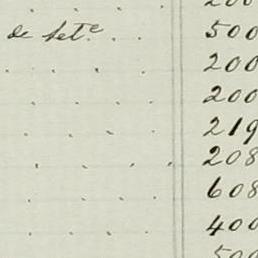 200
de Set.e . . 500
. . . 200
. . . 200
. . . 219
. . . . 208
. . . 608
. . . 400
500